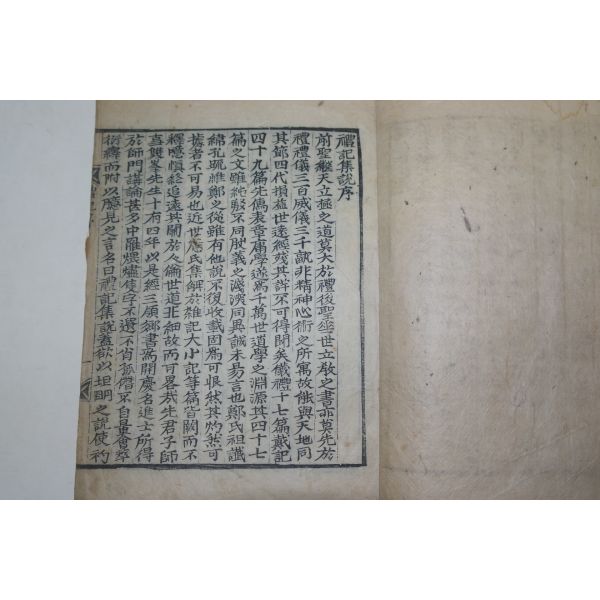 禮記集說序
前聖繼天立極之道莫大於禮後聖垂世立敎之書亦莫先於
禮禮儀三百威儀三千孰非精神心術之所寓故能與天地同
其節四代損益世遠經殘其詳不可得聞矣儀禮十七篇戴記
四十九篇先儒表章庸學遂爲千萬世道學之淵源其四十七
篇之文雖純駁不同然義之淺深同異誠未易言也鄭氏祖讖
緯孔疏惟鄭之從雖有他說不復收載固爲可恨然其灼然可
據者不可易也近世應氏集解於雜記大小記等篇皆闕而不
釋噫愼終追遠其關於人倫世道非細故而可畧哉先君子師
事雙峯先生十有四年以是經三領鄕書爲開慶名進士所得
於師門講論甚多中罹煨燼隻字不遺不肖孤僭不自量會萃
衍繹而附以臆見之言名曰禮記集說蓋欲以坦明之說使初